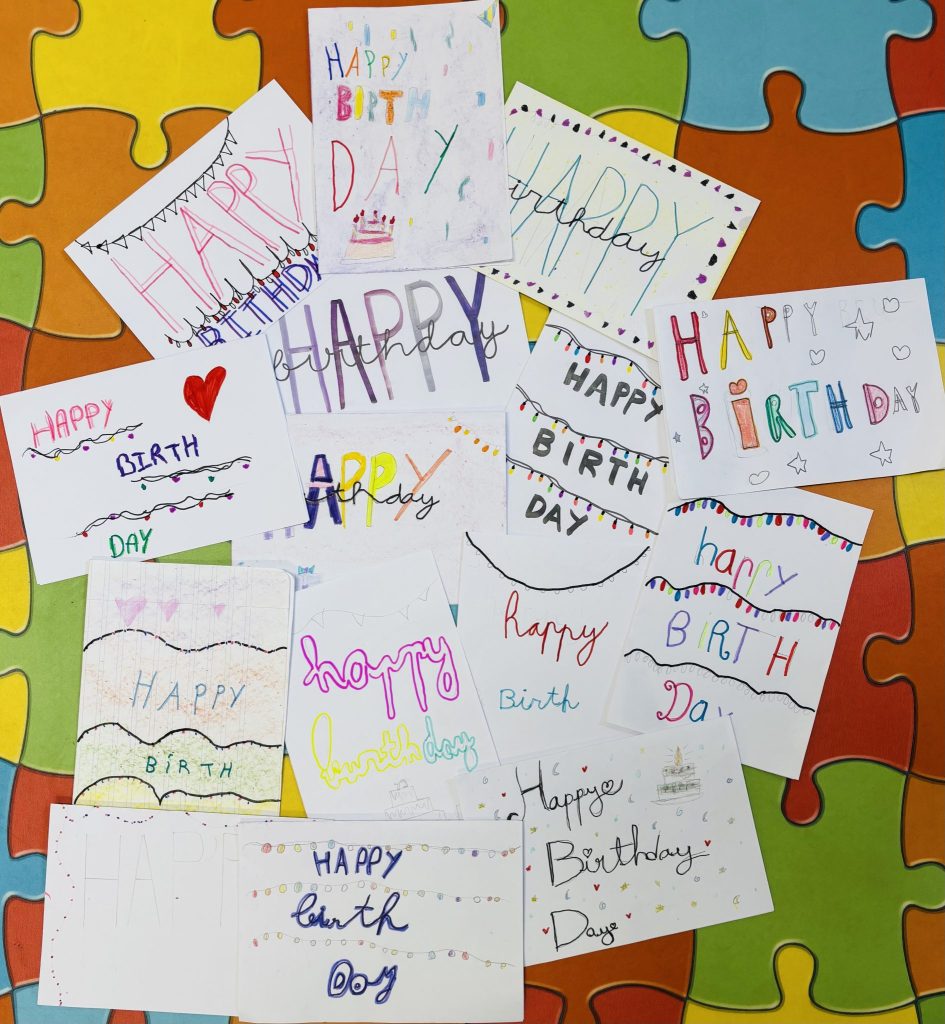 HAPPY
BIRTH
DAY
HAPPY
BIRTHDY
HAPPY
birthday
HAPPY
birthday
HAPPY
BIRTH
DAY
HAPPY
BIRTHDAY
HAPPY
BIRTH
DAY
APPY
birthday
happy
BIRTH
Da
HAPPY
BIRTH
happy
birthday
23
happy
Birth
HAPPY
HAPPY
birth
Day
Happy
Birthday
Daye